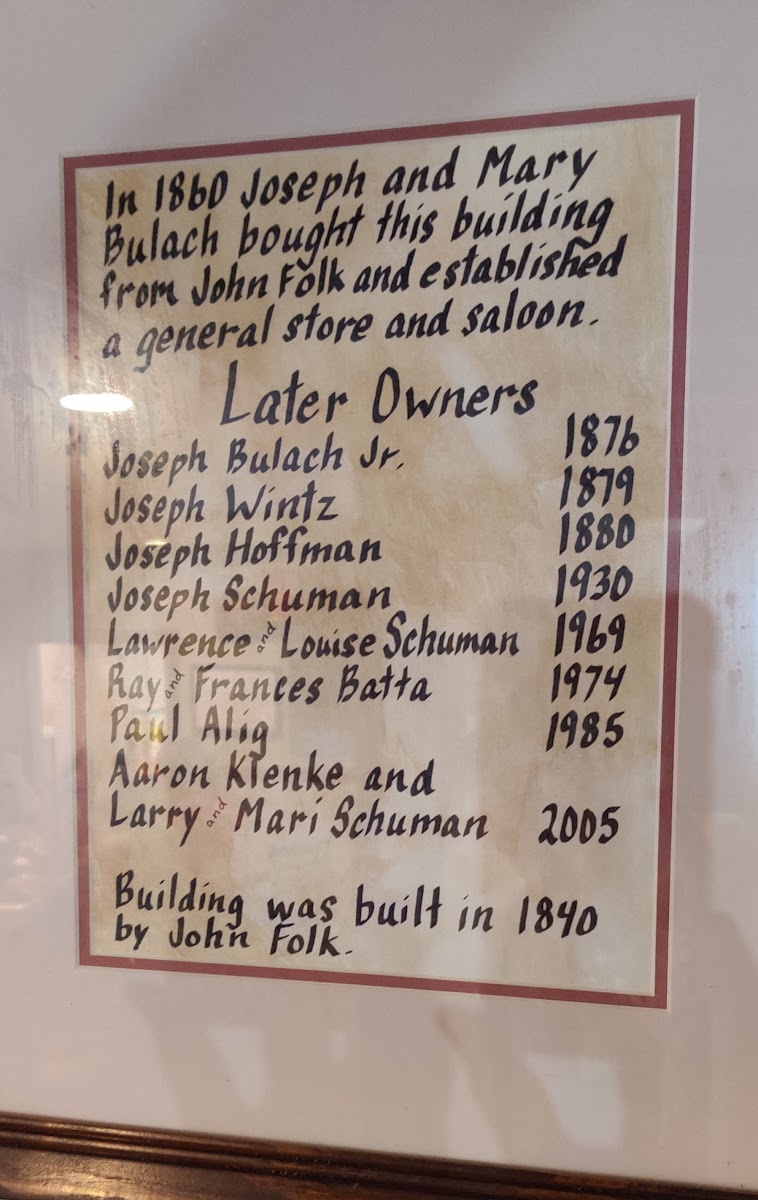 In 1860 Joseph and Mary
Bulach bought this building
from John Folk and established
a general store and saloon.
Later Owners
Joseph Bulach Jr. 1876
Joseph Wintz 1879
Joseph Hoffman 1880
Joseph Schuman 1930
Lawrence and Louise Schuman 1969
Ray and Frances Batta 1974
Paul Alig 1985
Aaron Klenke and
Larry and Mari Schuman 2005
Building was built in 1840
by John Folk.